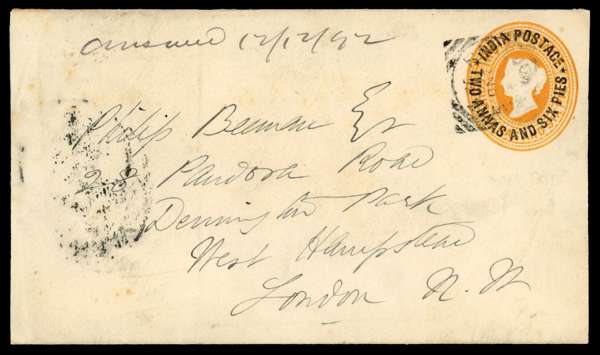 answered 12/12/92
INDIA POSTAGE
TWO ANNAS AND SIX PIES
Philip Beeman Esq
28 Pandora Road
Dennington Park
West Hampstead
London N. W